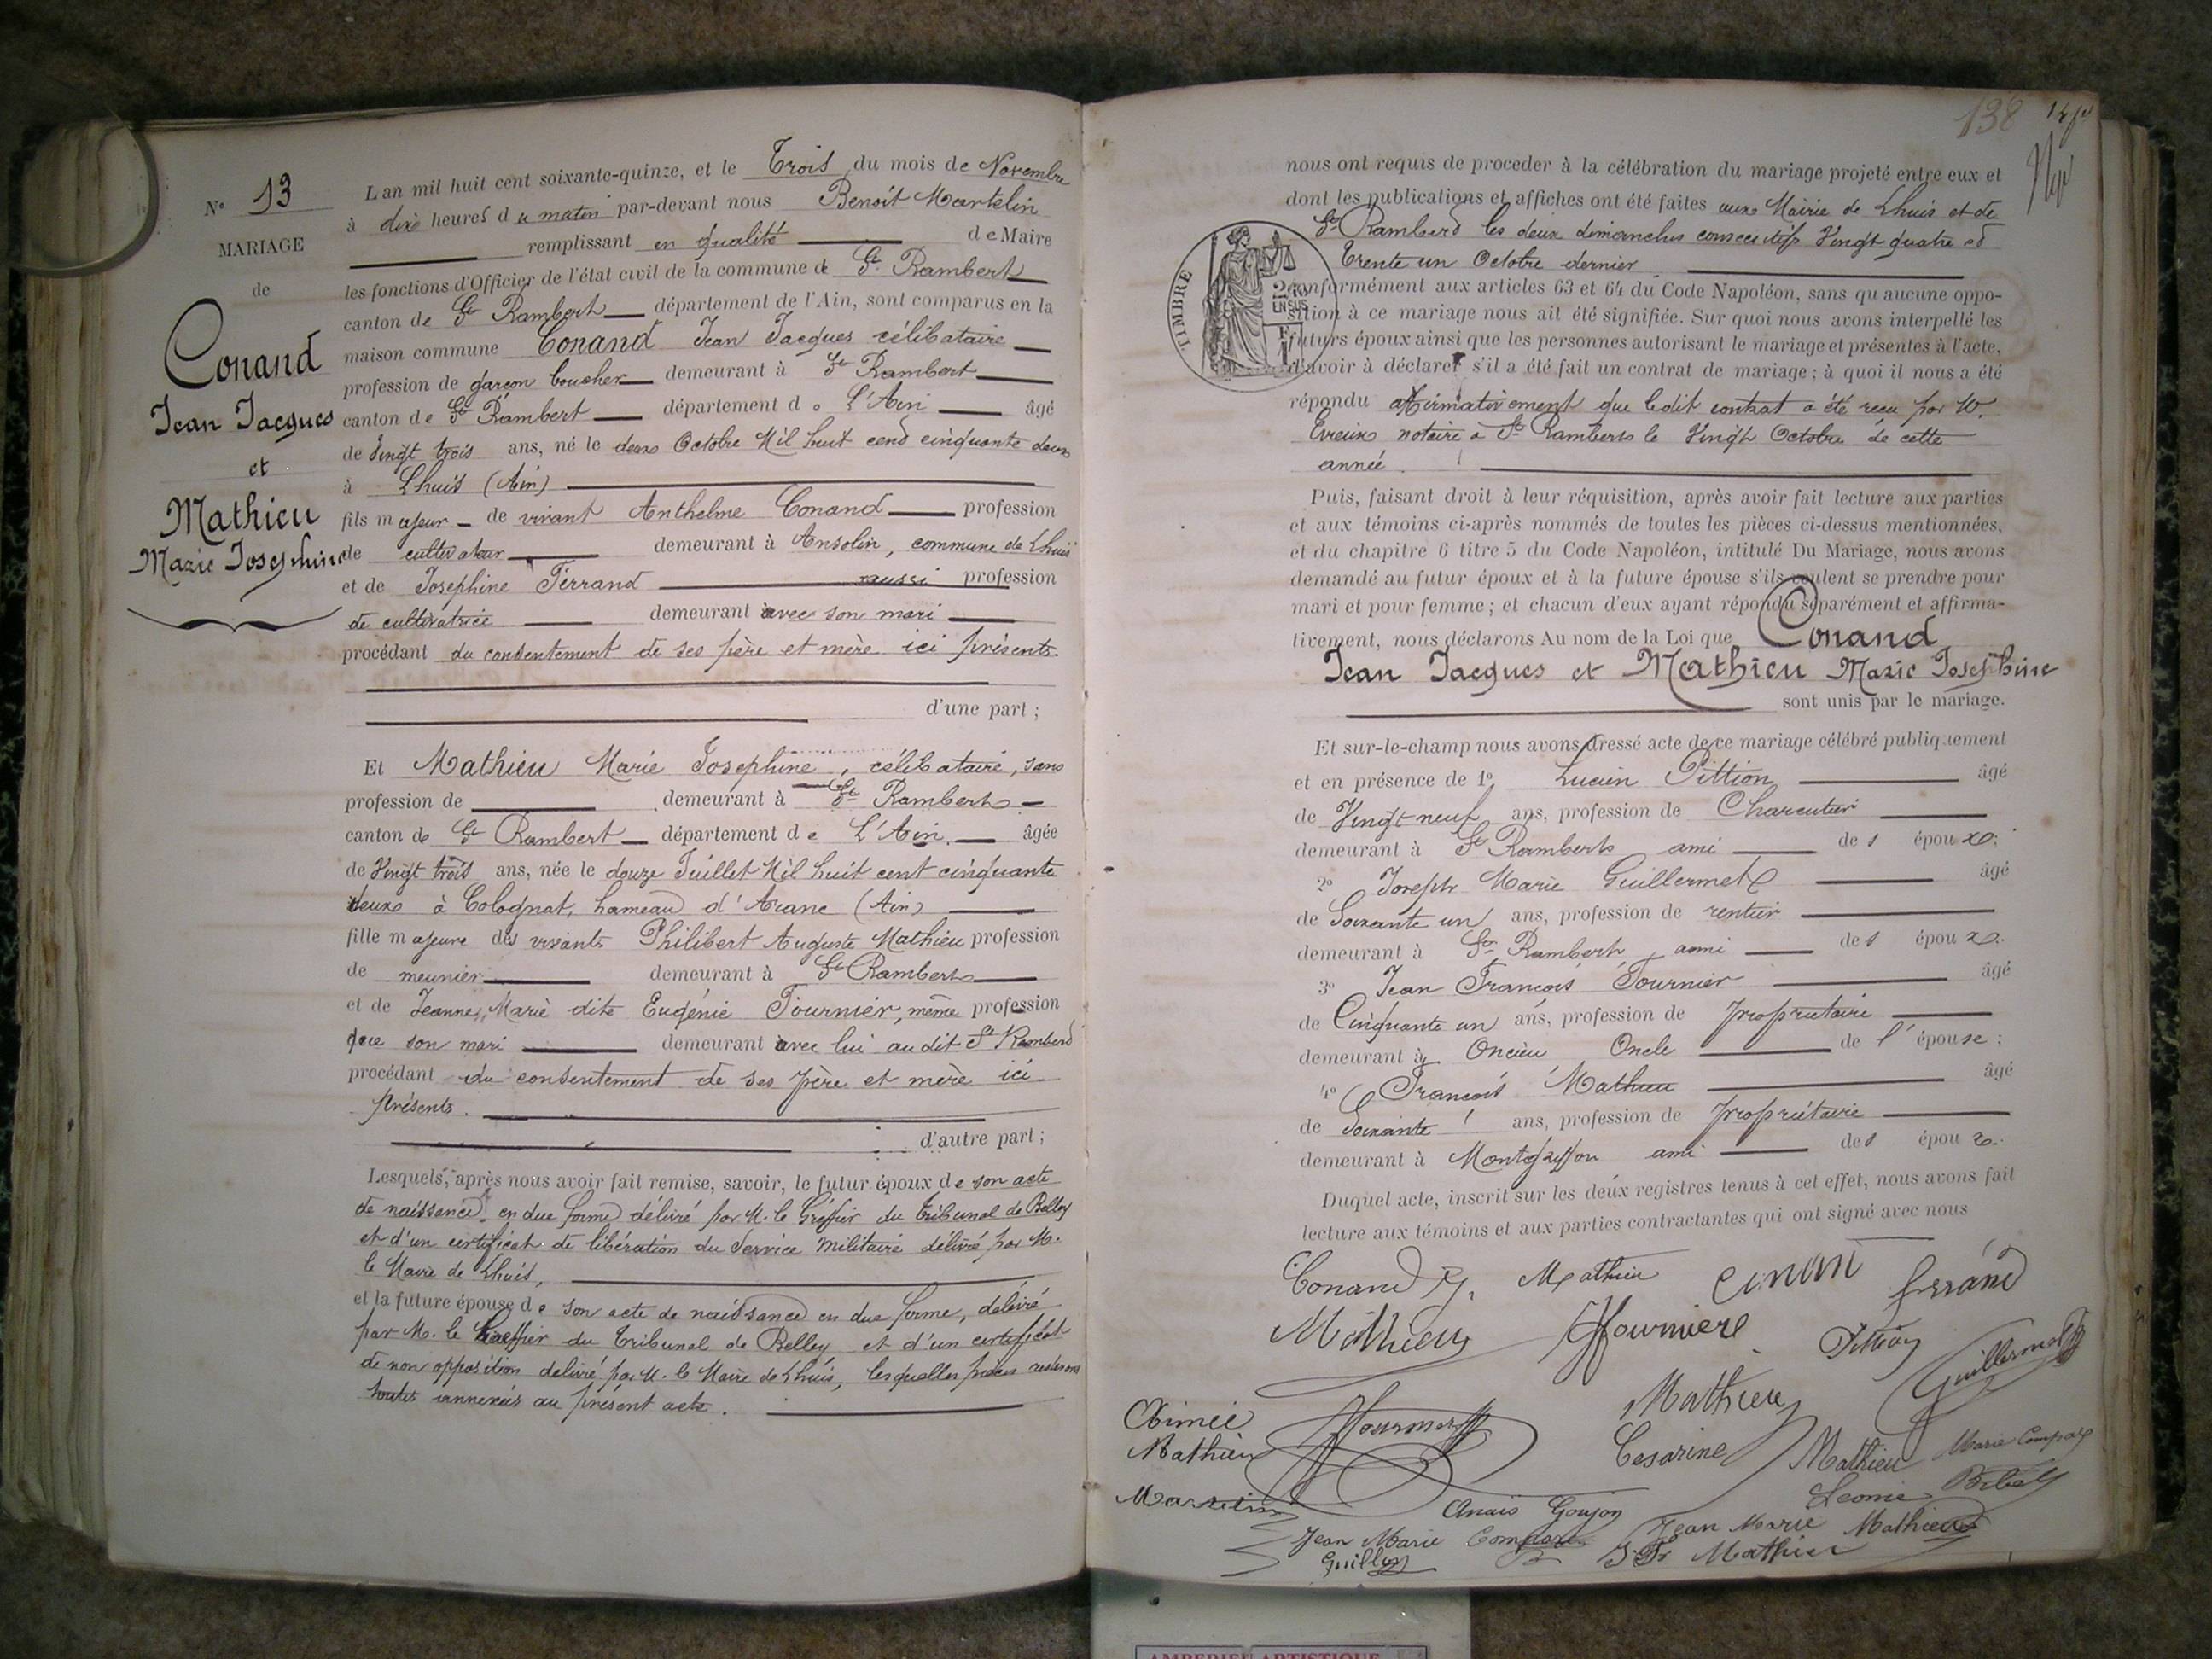 N° 13
MARIAGE
de
Conand
Jean Jacques
et
Mathieu
Marie Josephine
L an mil huit cent soixante-quinze, et le Trois du mois de Novembre
à dix heures du matin par-devant nous Benoit Martelin
remplissant en qualité de Maire
les fonctions d'Officier de l'état civil de la commune de St Rambert
canton de St Rambert département de l'Ain, sont comparus en la
maison commune Conand Jean Jacques célibataire
profession de garçon boucher demeurant à St Rambert
canton de St Rambert département de L'Ain âgé
de Vingt trois ans, né le deux Octobre Mil huit cent cinquante deux
à Lhuis (Ain)
fils majeur de vivant Anthelme Conand profession
de cultivateur demeurant à Ansolin, commune de Lhuis
et de Josephine Ferrand aussi profession
de cultivatrice demeurant avec son mari
procédant du consentement de ses père et mère ici présents.
d'une part ;
Et Mathieu Marie Josephine, célibataire, sans
profession de demeurant à St Rambert
canton de St Rambert département de L'Ain âgée
de Vingt trois ans, née le douze Juillet Mil huit cent cinquante
deux à Colognat, hameau d'Aranc (Ain)
fille majeure des vivants Philibert Auguste Mathieu profession
de meunier demeurant à St Rambert
et de Jeanne Marie dite Eugénie Fournier, même profession
que son mari demeurant avec lui au dit St Rambert
procédant du consentement de ses père et mère ici
présents.
d'autre part ;
Lesquels, après nous avoir fait remise, savoir, le futur époux de son acte
de naissance en due forme délivré par M. le Greffier du Tribunal de Belley
et d'un certificat de libération du Service Militaire délivré par M.
le Maire de Lhuis,
et la future épouse de son acte de naissance en due forme, délivré
par M. le Greffier du Tribunal de Belley et d'un certificat
de non opposition délivré par M. le Maire de Lhuis, lesquelles pièces resteront
toutes annexées au présent acte.
138
TIMBRE
nous ont requis de proceder à la célébration du mariage projeté entre eux et
dont les publications et affiches ont été faites aux Mairie de Lhuis et de
St Rambert les deux dimanches consecutifs Vingt quatre et
Trente un Octobre dernier
conformément aux articles 63 et 64 du Code Napoléon, sans qu aucune oppo-
sition à ce mariage nous ait été signifiée. Sur quoi nous avons interpellé les
futurs époux ainsi que les personnes autorisant le mariage et présentes à l'acte,
d'avoir à déclarer s'il a été fait un contrat de mariage ; à quoi il nous a été
répondu affirmativement que ledit contrat a été reçu par
notaire à St Rambert le Vingt Octobre de cette
année.
Puis, faisant droit à leur réquisition, après avoir fait lecture aux parties
et aux témoins ci-après nommés de toutes les pièces ci-dessus mentionnées,
et du chapitre 6 titre 5 du Code Napoléon, intitulé Du Mariage, nous avons
demandé au futur époux et à la future épouse s'ils veulent se prendre pour
mari et pour femme ; et chacun d'eux ayant répondu séparément et affirma-
tivement, nous déclarons Au nom de la Loi que Conand
Jean Jacques et Mathieu Marie Josephine
sont unis par le mariage.
Et sur-le-champ nous avons dressé acte de ce mariage célébré publiquement
et en présence de 1° Lucien Pittion âgé
de Vingt neuf ans, profession de Charcutier
demeurant à St Rambert ami des époux;
2° Joseph Marie Guillermet âgé
de Soixante un ans, profession de rentier
demeurant à St Rambert ami des époux.
3° Jean François Fournier âgé
de Cinquante un ans, profession de propriétaire
demeurant à Oncieu Oncle de l'épouse ;
4° François Mathieu âgé
de Soixante ans, profession de propriétaire
demeurant à Montgriffon ami des époux.
Duquel acte, inscrit sur les deux registres tenus à cet effet, nous avons fait
lecture aux témoins et aux parties contractantes qui ont signé avec nous
Conand J. Mathieu Conan ferrand
Mathieu Fourniere Pittion Guillermet
Mathieu
Aimée Mathieu
Cesarine Mathieu
Martelin
Anais Goujon
Leonie
Jean Marie
Jean Marie Mathieu
Mathieu
AMBERIEU ARTISTIQUE